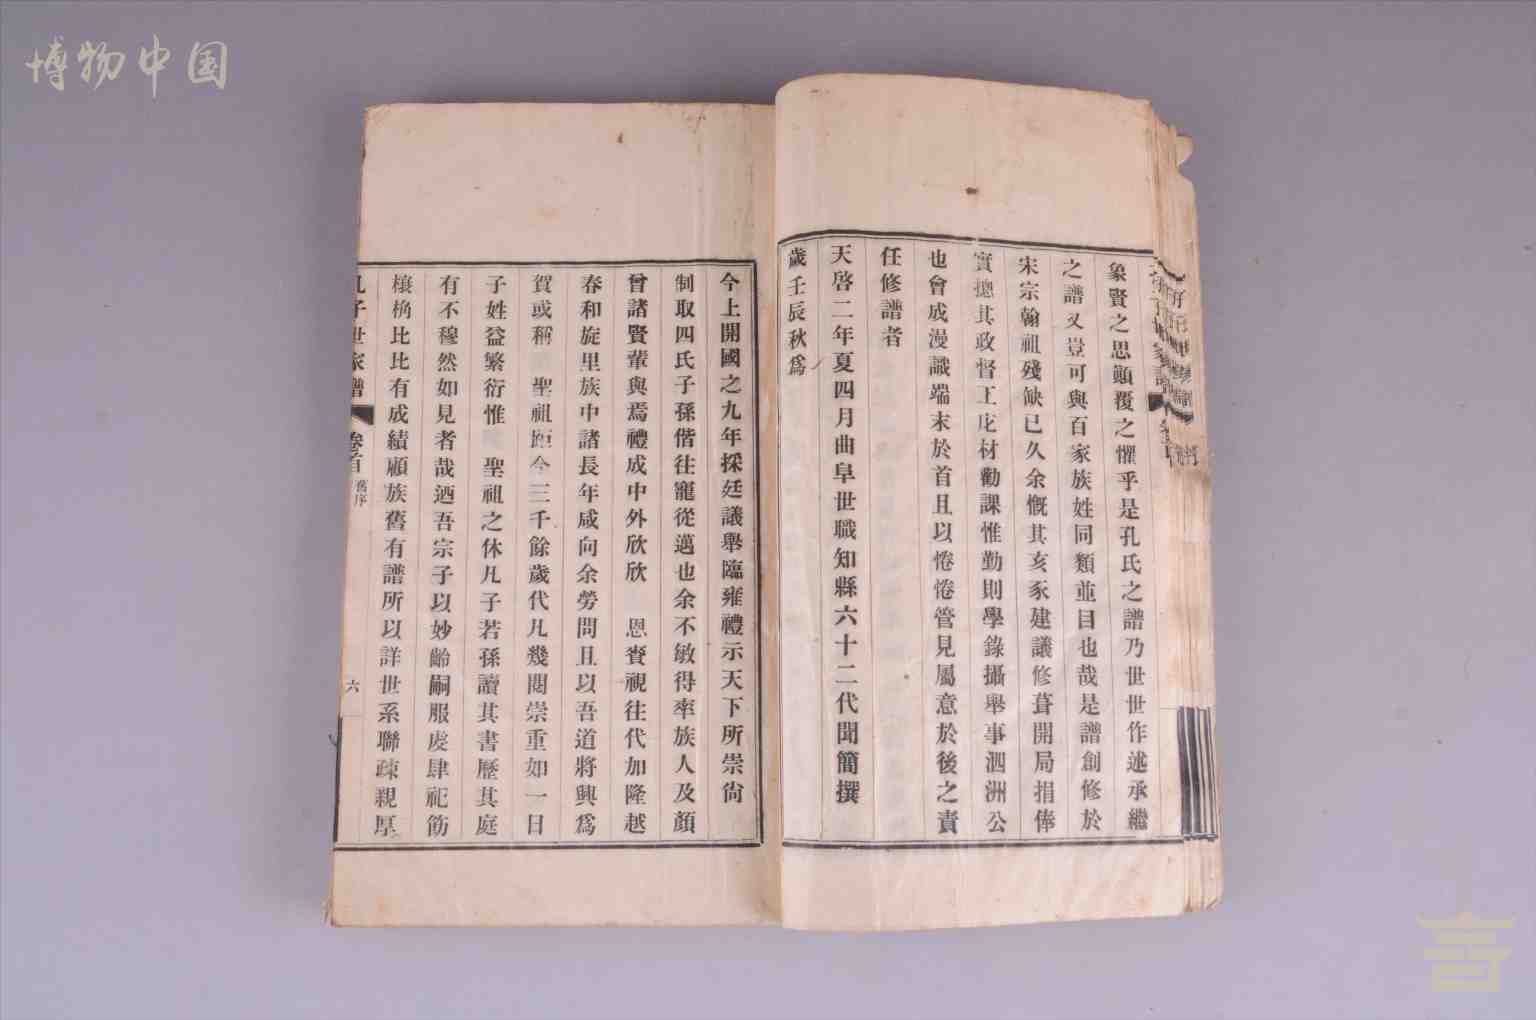 博物中国
象賢之思顚覆之懼乎是孔氏之譜乃世世作述承繼
之譜又豈可與百家族姓同類並目也哉是譜創修於
宋宗翰祖殘缺已久余慨其亥豕建議修葺開局捐俸
實摠其政督工庀材勸課惟勤則學錄攝舉事泗洲公
也會成漫識端末於首且以惓惓管見屬意於後之責
任修譜者
天啓二年夏四月曲阜世職知縣六十二代聞簡撰
歲壬辰秋爲
今上開國之九年採廷議舉臨雍禮示天下所崇尙
制取四氏子孫偕往寵從邁也余不敏得率族人及顏
曾諸賢輩與焉禮成中外欣欣 恩賚視往代加隆越
春和旋里族中諸長年咸向余勞問且以吾道將興爲
賀或稱 聖祖距今三千餘歲代凡幾閱崇重如一日
子姓益繁衍惟 聖祖之休凡子若孫讀其書歷其庭
有不穆然如見者哉迺吾宗子以妙齡嗣服虔肆祀筋
榱桷比比有成績顧族舊有譜所以詳世系聯疎親厚
孔子世家譜 卷首 舊序 六